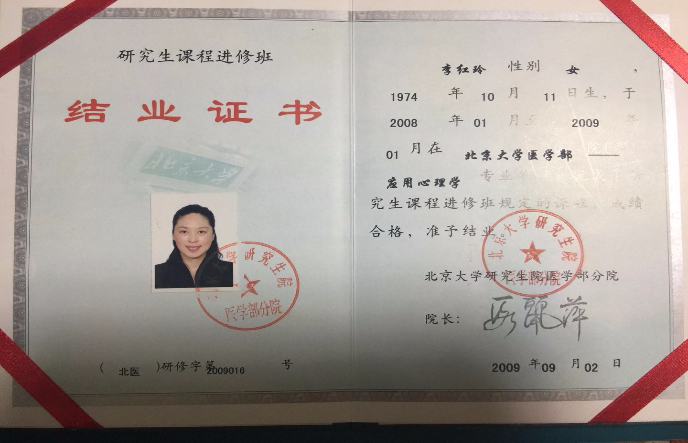 研究生课程进修班
结业证书
北京大学
学研究生院
医学部分院
(北医)研修字第2009016号
李红玲 性别 女,
1974 年 10 月 11 日生,于
2008 年 01 月至 2009 年
01 月在 北京大学医学部——
应用心理学 专业
究生课程进修班规定的课程,成绩
合格,准予结业
北京大学研究生院
医学部分院
北京大学研究生院医学部分院
院长:
2009 年 09 月 02 日